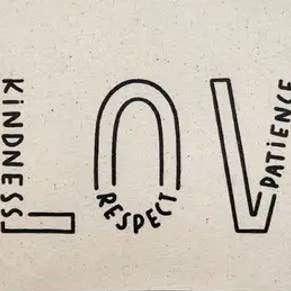 LOV
KiNDNESS
RESPECT
PATiENCE